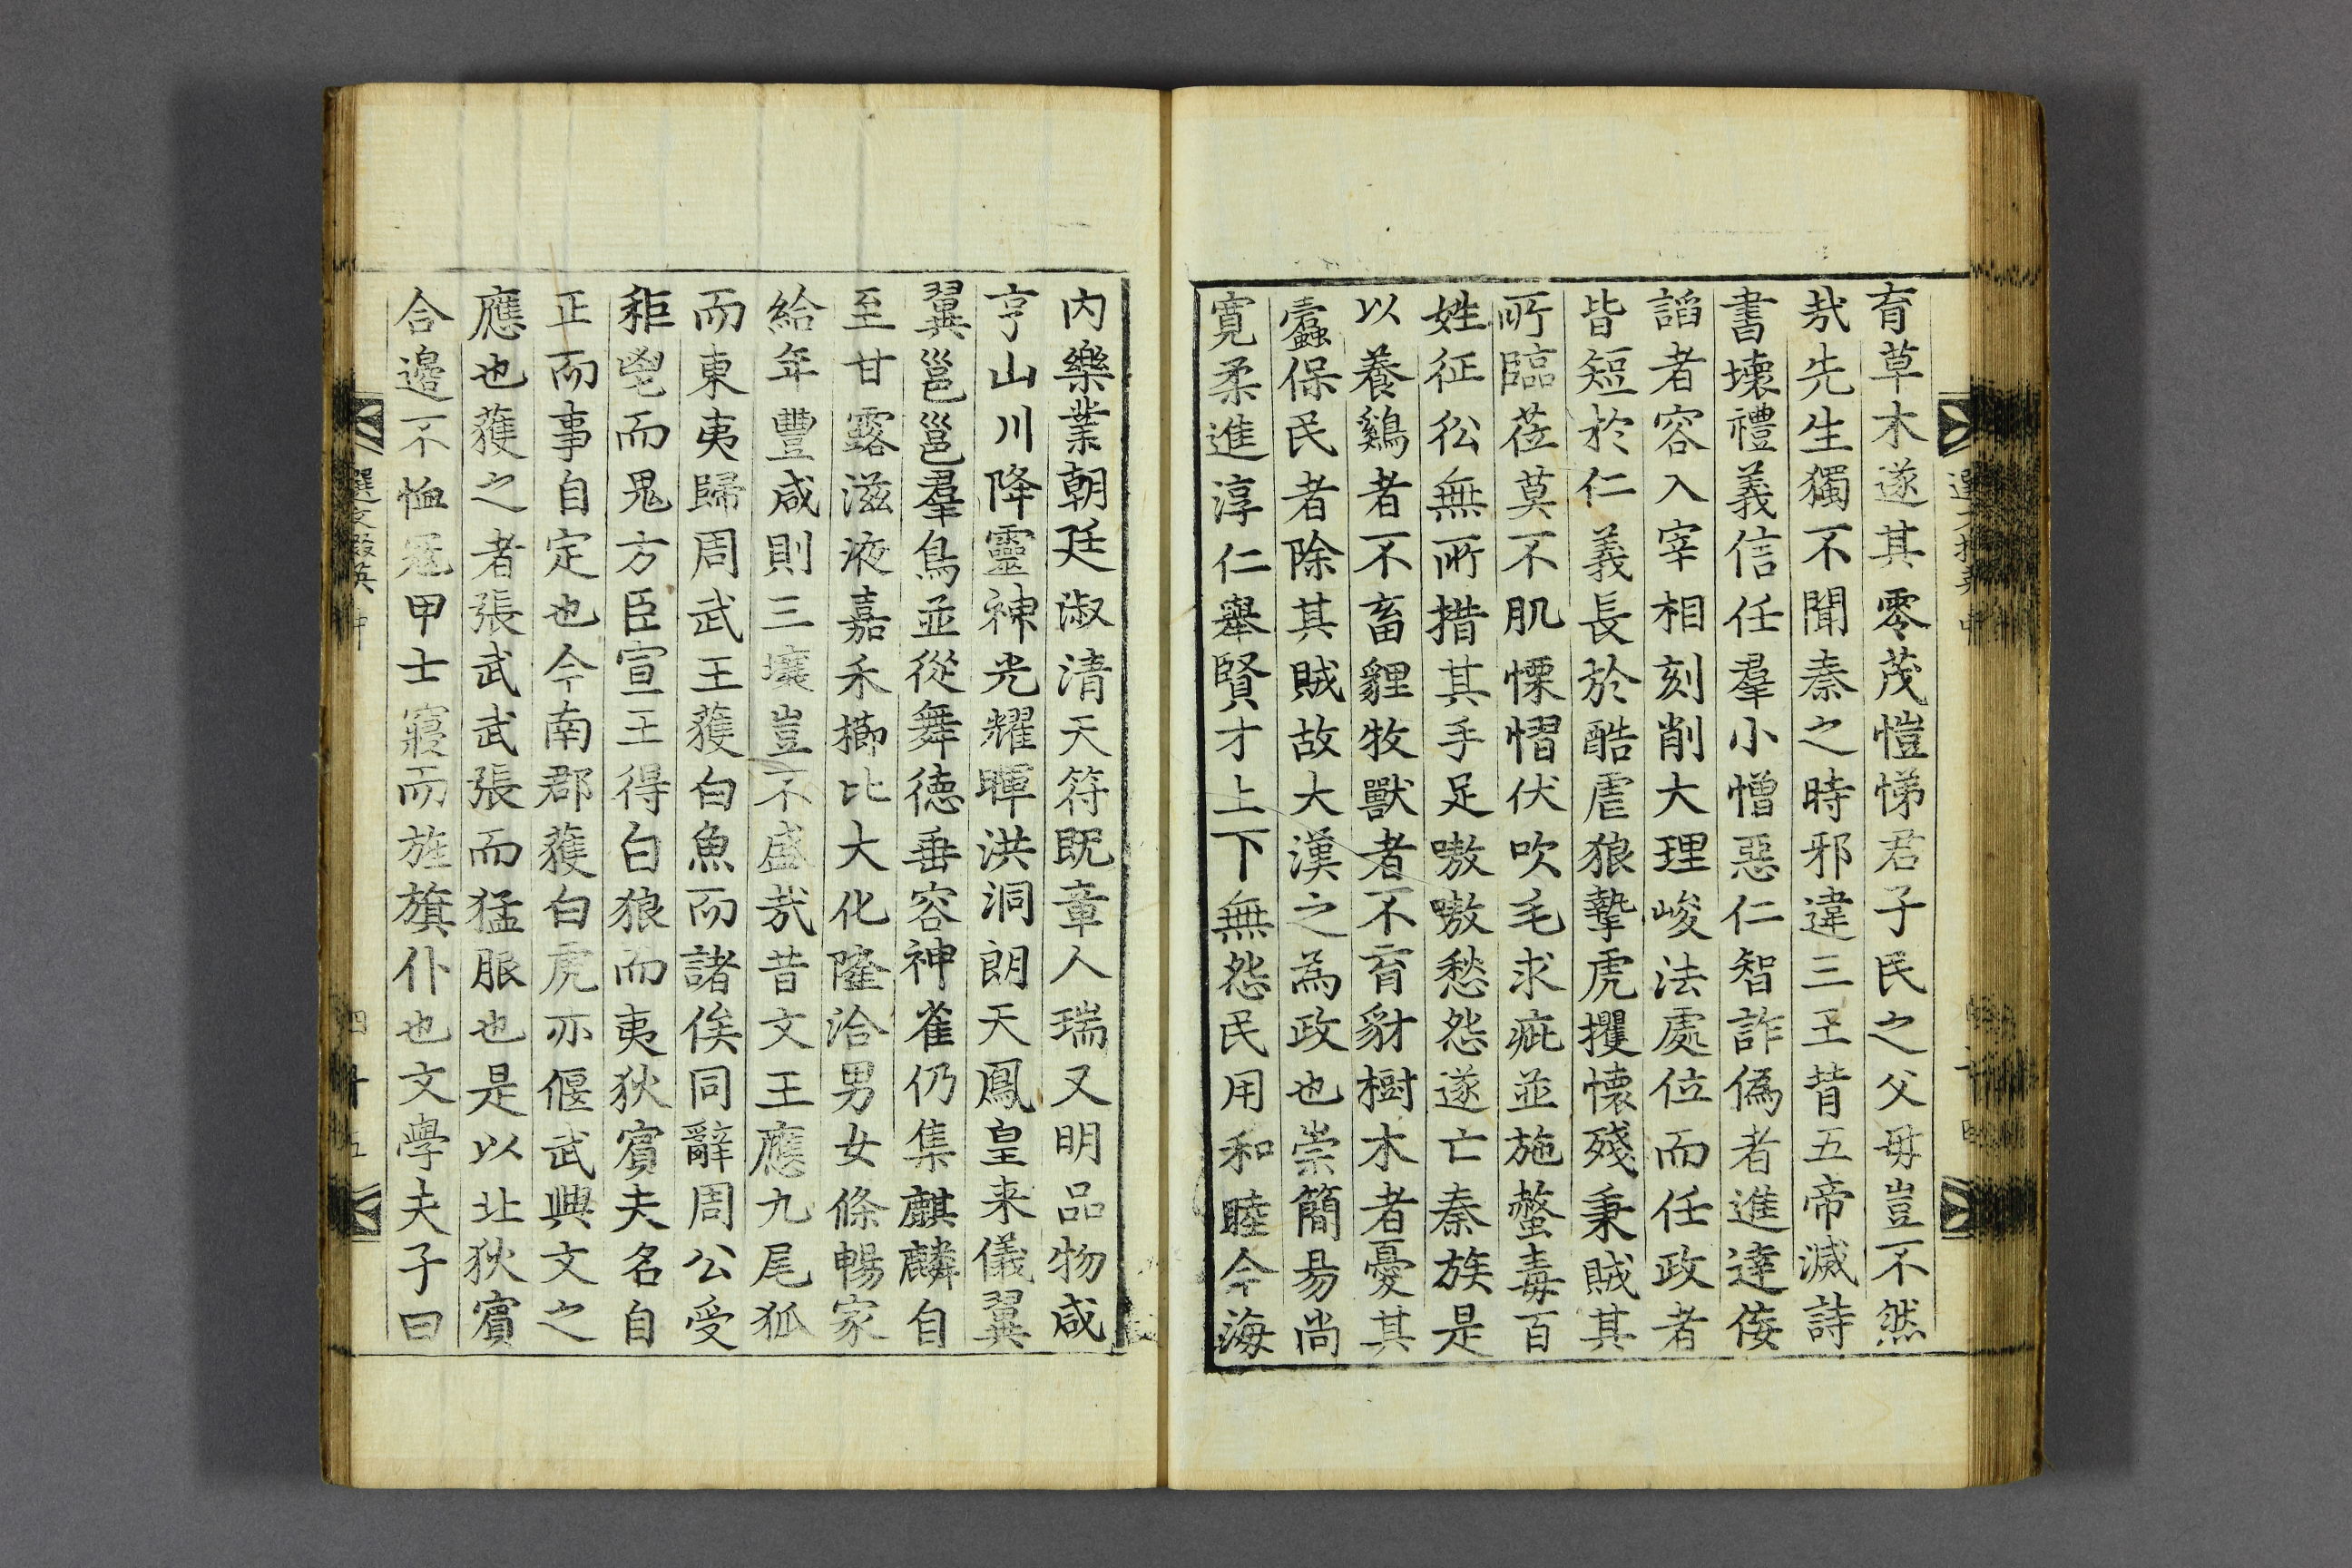 育草木遂其零茂愷悌君子民之父毋豈不然
㢤先生獨不聞秦之時邪違三王昔五帝滅詩
書壞禮義信任羣小憎惡仁智詐僞者進達佞
謟者容入宰相刻削大理峻法處位而任政者
皆短於仁義長於酷虐狼摯虎攫懷殘秉賊其
所臨莅莫不肌慄慴伏吹毛求疵並施螫毒百
姓征彸無所措其手足嗷嗷愁怨遂亡秦族是
以養鷄者不畜貍牧獸者不育豺樹木者憂其
蠹保民者除其賊故大漢之為政也崇簡昜尚
寬柔進淳仁舉賢才上下無怨民用和睦今海
內樂業朝廷淑清天符既章人瑞又明品物咸
亨山川降靈神光耀暉洪洞朗天鳳皇来儀翼
翼邕邕羣鳥並從舞德垂容神雀仍集麒麟自
至甘露滋液嘉禾櫛比大化隆洽男女條暢家
給年豐咸則三壤豈不盛㢤昔文王應九尾狐
而東夷歸周武王獲白魚而諸侯同辭周公受
秬鬯而鬼方臣宣王得白狼而夷狄賓夫名自
正而事自定也今南郡獲白虎亦偃武興文之
應也獲之者張武武張而猛服也是以北狄賓
合邊不恤冦甲士寢而旌旗仆也文學夫子曰
選文掇英 中
四十五